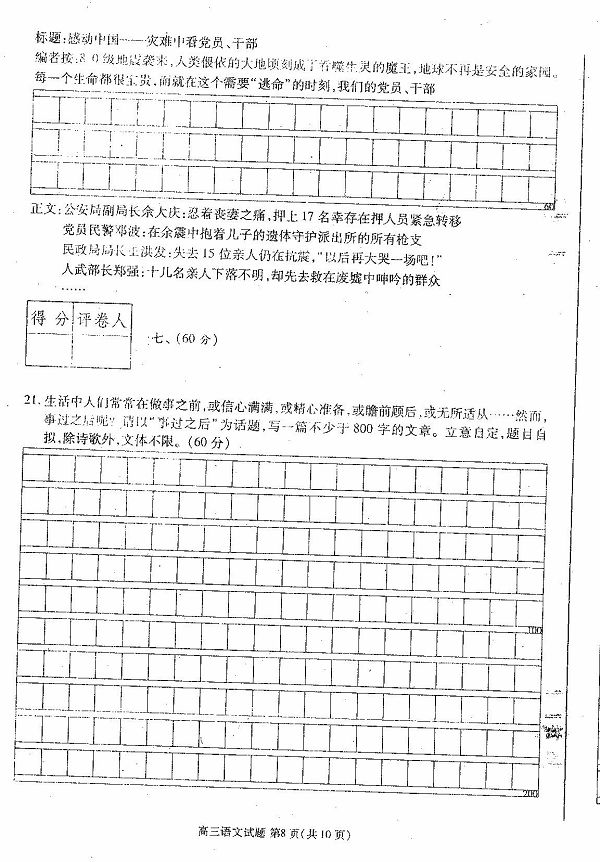 标题:感动中国——灾难中看党员、干部
编者按:8.0级地震袭来,人类偎依的大地顷刻成了吞噬生灵的魔王,地球不再是安全的家园。
每一个生命都很宝贵,而就在这个需要“逃命”的时刻,我们的党员、干部
60
正文:公安局副局长余大庆:忍着丧妻之痛,押上17名幸存在押人员紧急转移
党员民警邓波:在余震中抱着儿子的遗体守护派出所的所有枪支
民政局局长王洪发:失去15位亲人仍在抗震,“以后再大哭一场吧!”
人武部长郑强:十几名亲人下落不明,却先去救在废墟中呻吟的群众
……
得分 评卷人
七、(60分)
21.生活中人们常常在做事之前,或信心满满,或精心准备,或瞻前顾后,或无所适从……然而,
事过之后呢?请以“事过之后”为话题,写一篇不少于800字的文章。立意自定,题目自
拟,除诗歌外,文体不限。(60分)
100
200
高三语文试题 第8页(共10页)